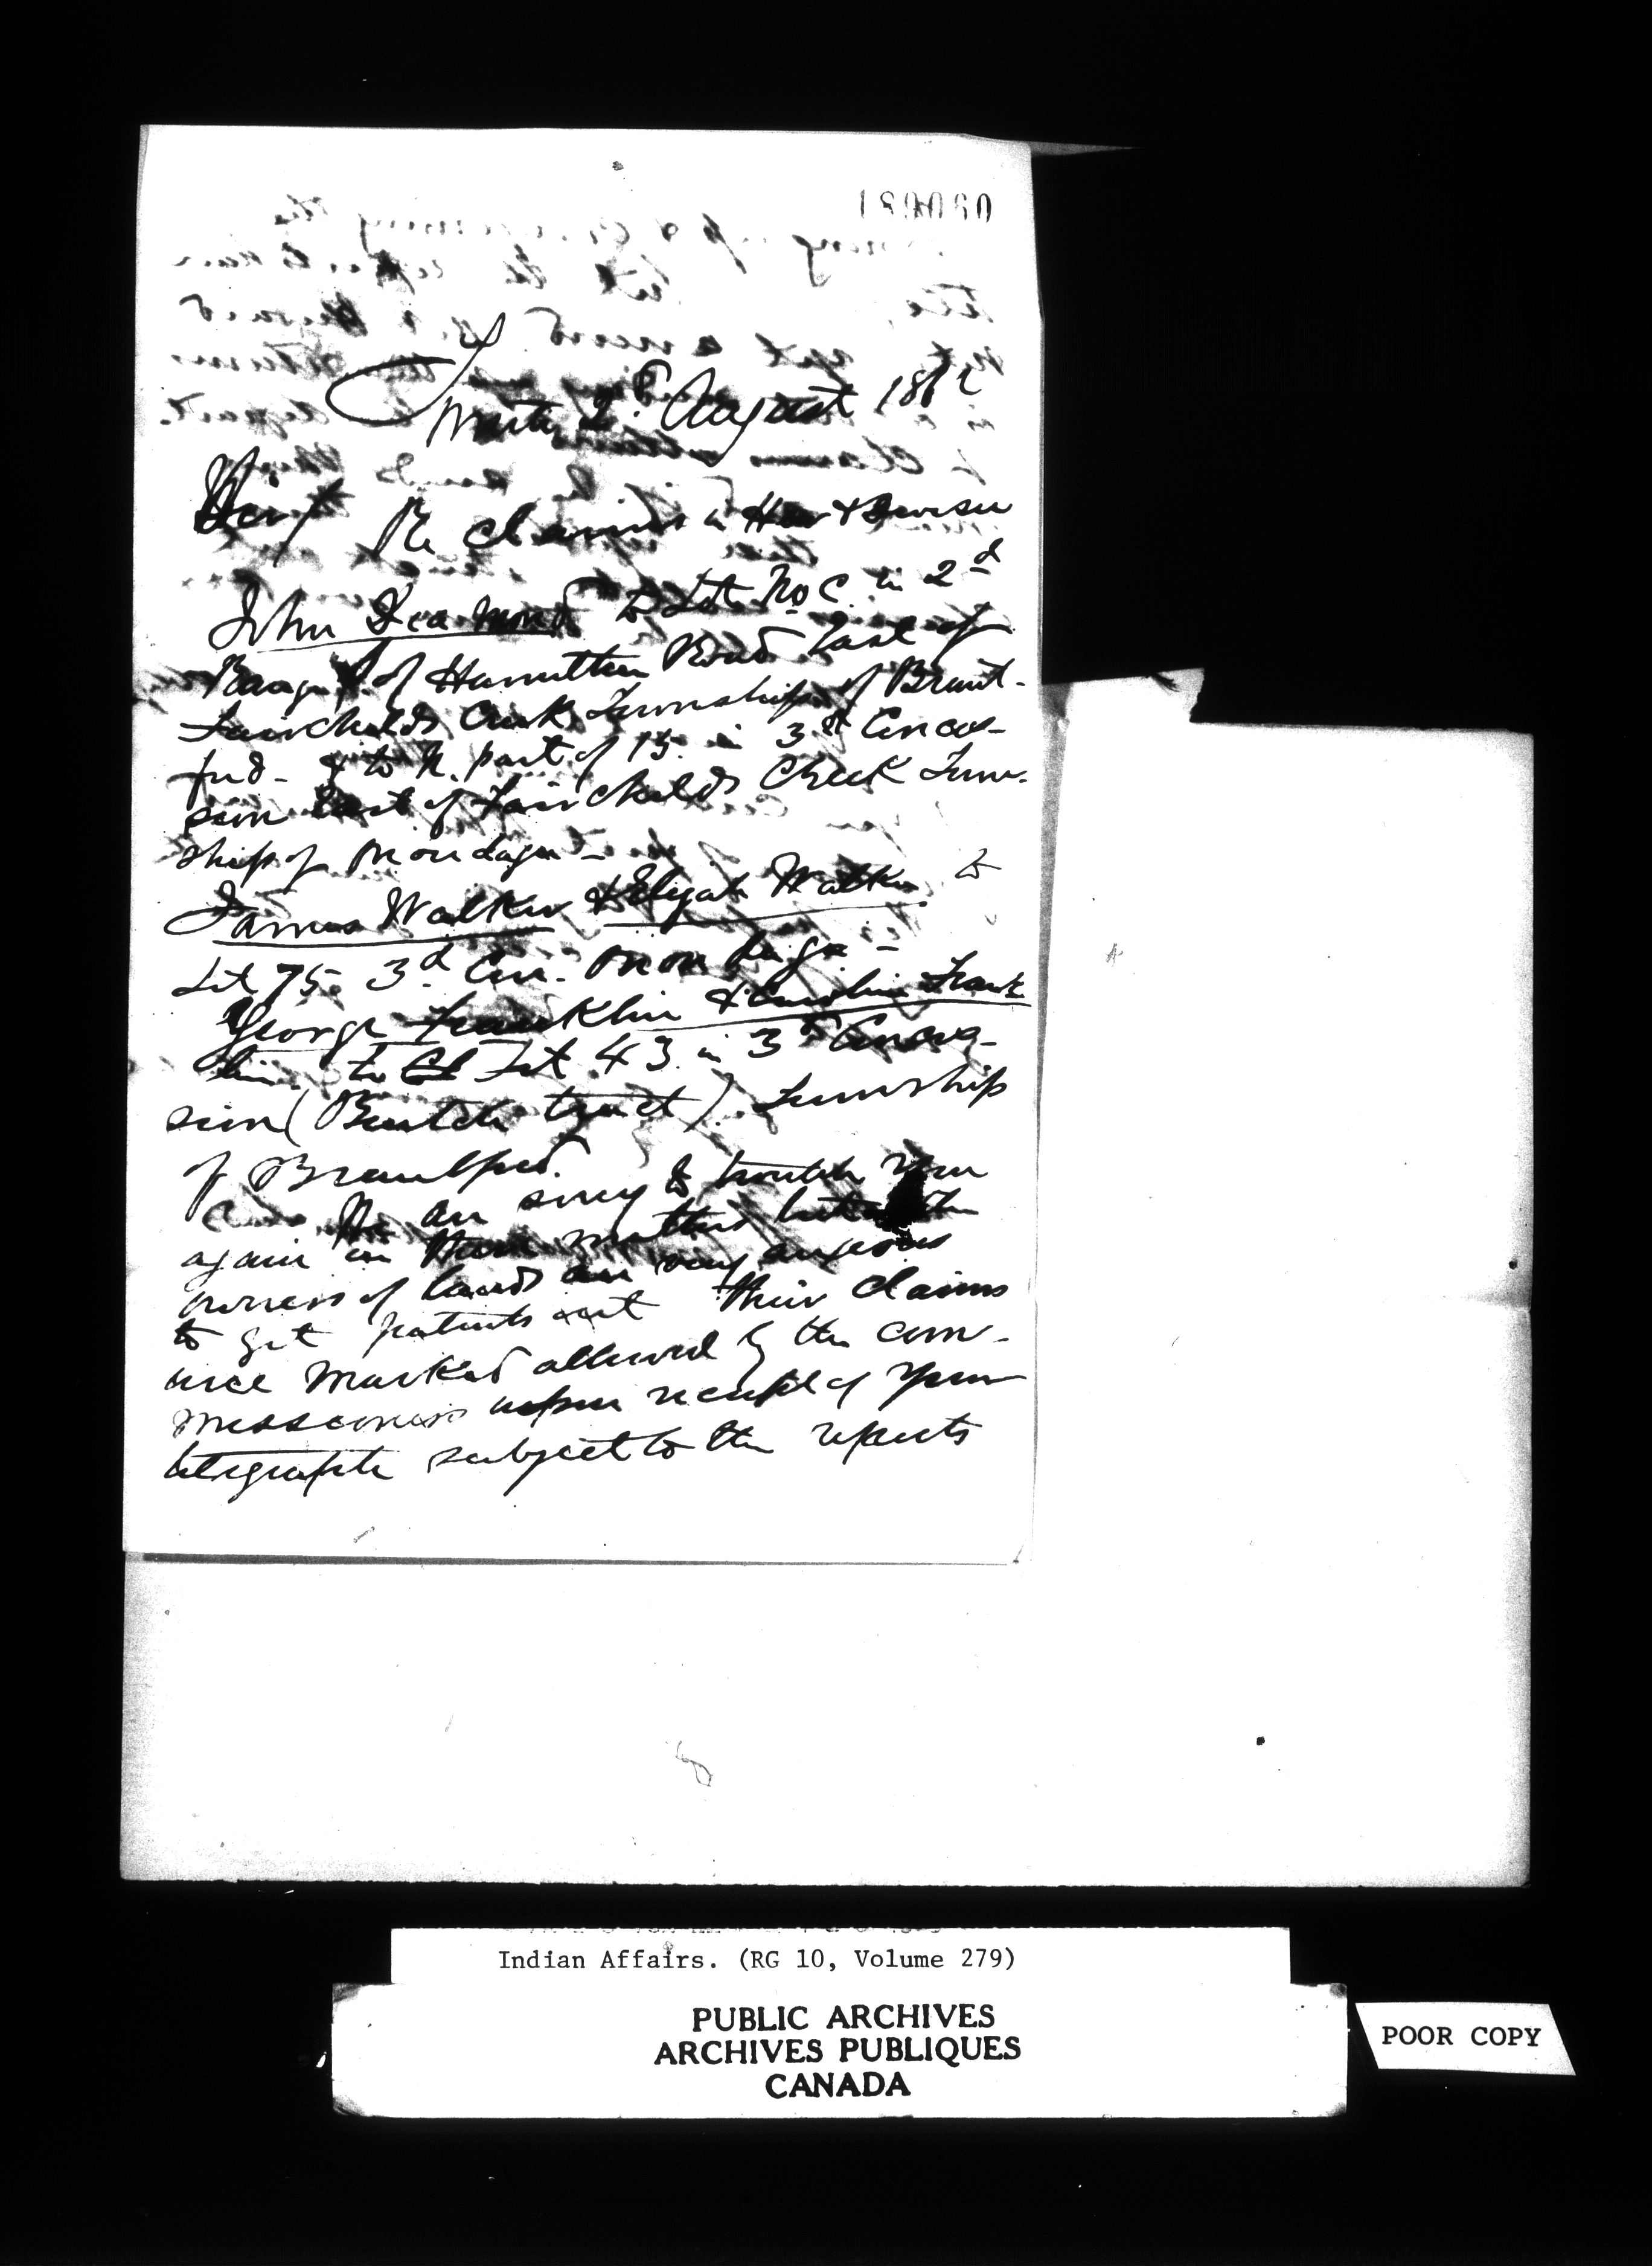 Toronto 2d August 1862
Sir/ Re Claims in Heir & Devisee
John Deamond to Lot No C. in 2d
Range of Hamilton Road East of
Fairchilds Creek Township of Brant-
ford - & to N. part of 15 in 3d Conces-
sion East of Fairchilds Creek Town-
ship of Onondaga -
James Walker & Elijah Walker to
Lot 75. 3d Con. Onondaga -
George Franklin & Caroline Frank
lin to Lot 43 in 3d Conces-
sion (Burtch tract) Township
of Brantford.
We are sorry to trouble you
again in these matters but the
owners of lands are very anxious
to get patents out Their Claims
were marked allowed by the com-
missioners upon receipt of your
telegraph subject to the reports
Indian Affairs. (RG 10, Volume 279)
PUBLIC ARCHIVES
ARCHIVES PUBLIQUES
CANADA
POOR COPY